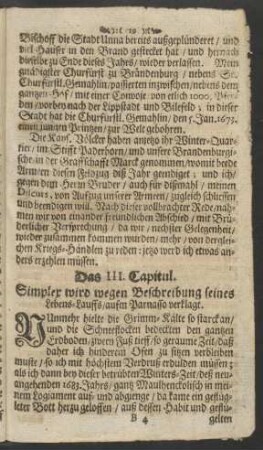 Bischoff die Stadt Unna bereits außgeplündert / und
viel Häuser in den Brand gestecket hat / und hernach
dieselbe zu Ende dieses Jahrs / wieder verlassen. Mein
gnädigster Churfürst zu Brandenburg / nebens Se.
Churfürstl. Gemahlin / passirten inzwischen / nebens dem
gantzen Hof / mit einer Convoje von etlich 1000.
den / vorbey nach der Lippstadt und Bilefeld; in dieser
Stadt hat die Churfürstl. Gemahlin / den 5. Jan. 1673.
einen jungen Printzen / zur Welt gebohren.
Die Käys. Völcker haben anjetzo ihr Winter-Quar-
tier / im Stifft Paderborn / und unsere Brandenburgi-
sche in der Graffschafft Marck genommen / womit beyde
Armeen diesen Feldzug diß Jahr geendiget; und ich /
gegen dem Herrn Bruder / auch für dißmahl / meinen
Discurs, von Aufzug unserer Armeen / zugleich schliessen
und beendigen will. Nach dieser vollbrachter Rede / nah-
men wir von einander freundlichen Abschied / mit Brü-
derlicher Versprechung / da wir / nechster Gelegenheit /
wieder zusammen kommen wurden / mehr / von derglei-
chen Kriegs-Händlen zu reden: jetzo werd ich etwas an-
ders erzehlen müssen.
Das III. Capitul.
Simplex wird wegen Beschreibung seines
Lebens-Lauffs / aufm Parnasso verklagt.
NUnmehr hielte die Grimm-Kälte so starck an /
und die Schneeflocken bedeckten den gantzen
Erdboden / zween Fuß tieff / so geraume Zeit / daß
daher ich hinderem Ofen zu sitzen verbleiben
muste / so ich mit höchstem Verdruß erdulden müssen;
als ich dann bey dieser betrübten Winters-Zeit / deß neu-
angehenden 1683. Jahrs / gantz Maulhenckolisch in mei-
nem Logiament auf- und abgienge / da kame ein geflüg-
leter Bott herzu geloffen / auß dessen Habit und geflü-
B 4
gelten